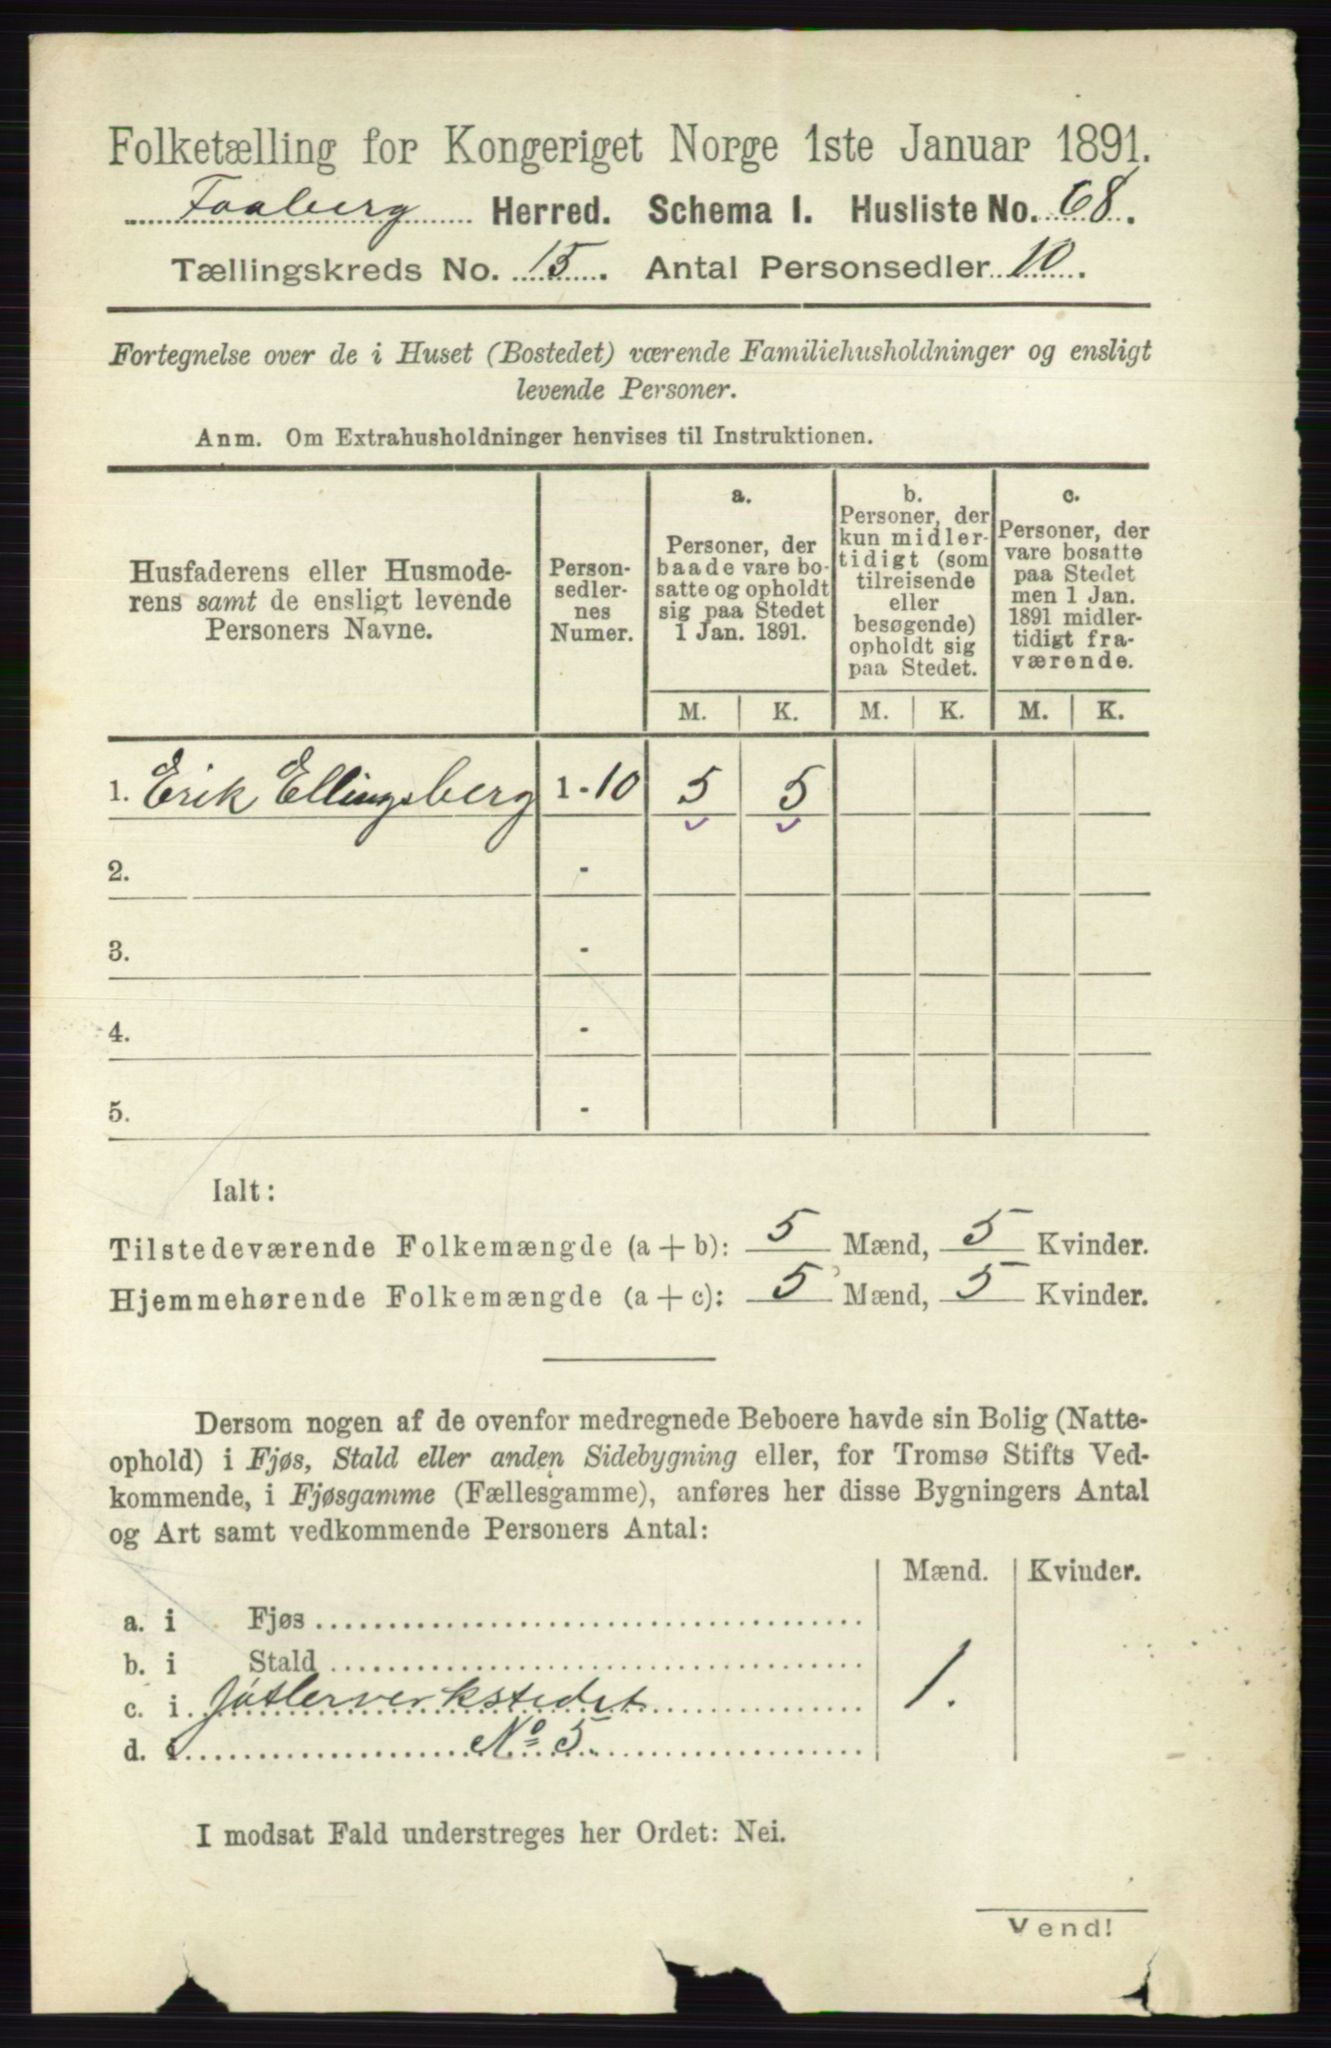 Folketælling for Kongeriget Norge 1ste Januar 1891.
Faaberg Herred. Schema I. Husliste No. 68.
Tællingskreds No. 15. Antal Personsedler 10.
Fortegnelse over de i Huset (Bostedet) værende Familiehusholdninger og ensligt
levende Personer.
Anm. Om Extrahusholdninger henvises til Instruktionen.
Husfaderens eller Husmode-
rens samt de ensligt levende
Personers Navne.
Person-
sedler-
nes
Numer.
a.
Personer, der
baade vare bo-
satte og opholdt
sig paa Stedet
1 Jan. 1891.
b.
Personer, der
kun midler-
tidigt (som
tilreisende
eller
besøgende)
opholdt sig
paa Stedet.
c.
Personer, der
vare bosatte
paa Stedet
men 1 Jan.
1891 midler-
tidigt fra-
værende.
M. K. M. K. M. K.
1. Erik Ellingsberg 1-10 5 5
2. -
3. -
4. -
5. -
Ialt:
Tilstedeværende Folkemængde (a + b): 5 Mænd, 5 Kvinder.
Hjemmehørende Folkemængde (a + c): 5 Mænd, 5 Kvinder.
Dersom nogen af de ovenfor medregnede Beboere havde sin Bolig (Natte-
ophold) i Fjøs, Stald eller anden Sidebygning eller, for Tromsø Stifts Ved-
kommende, i Fjøsgamme (Fællesgamme), anføres her disse Bygningers Antal
og Art samt vedkommende Personers Antal:
Mænd. Kvinder.
a. i Fjøs
b. i Stald
c. i verkstedet 1.
d. i No 5.
I modsat Fald understreges her Ordet: Nei.
Vend!